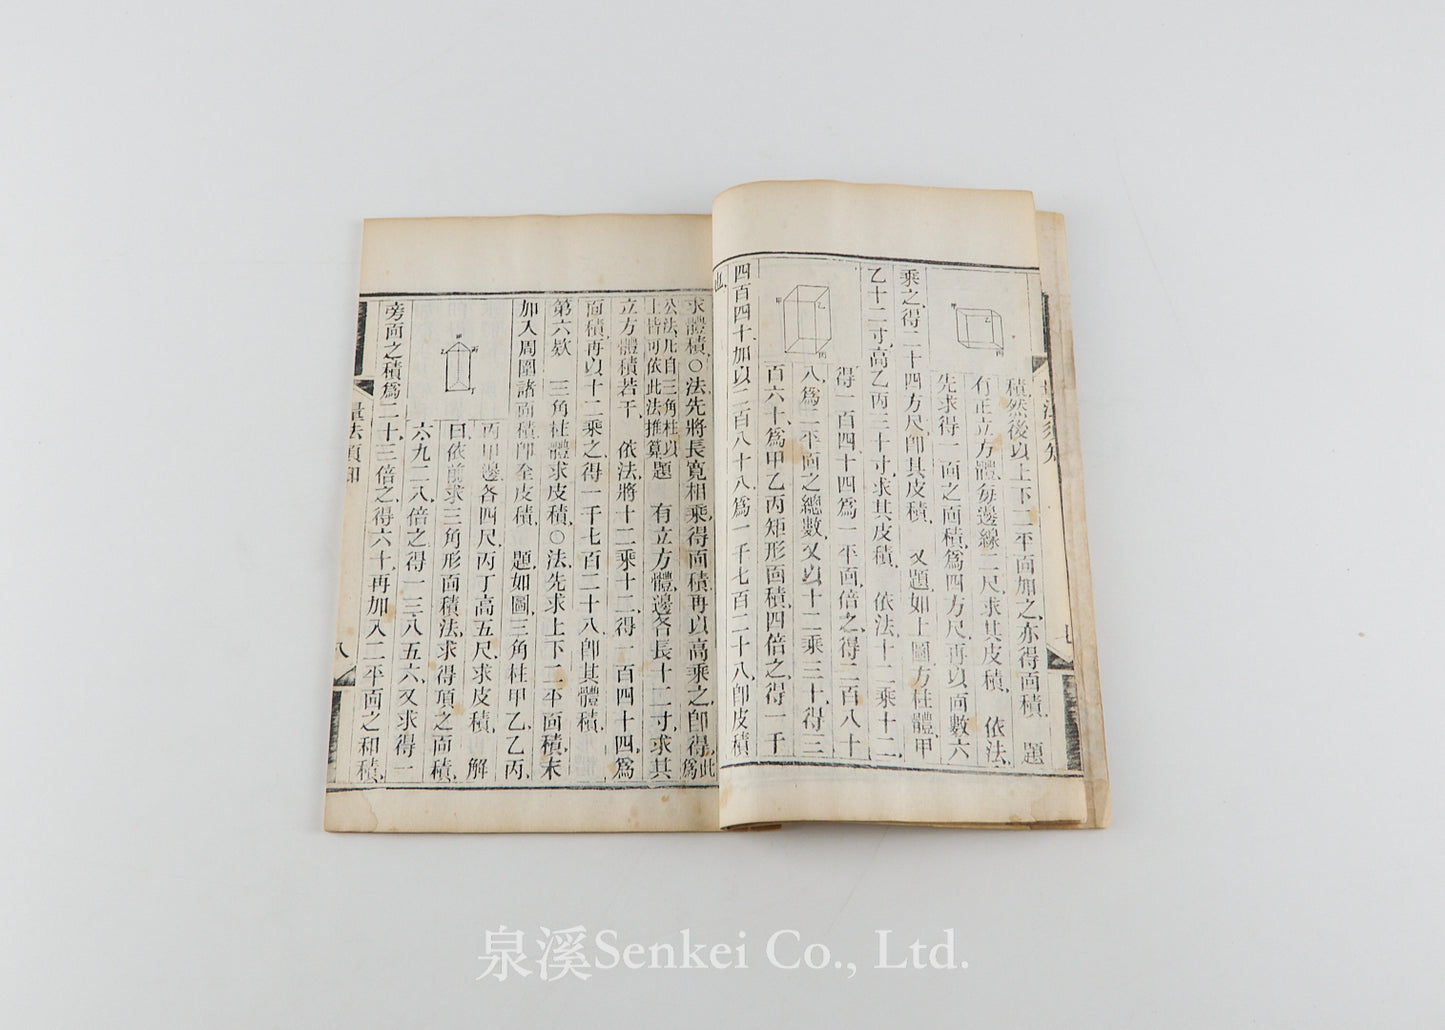 積然後以上下二平面加之亦得面積 題
有正立方體每邊線二尺求其皮積 依法
先求得一面之面積爲四方尺再以面數六
乘之得二十四方尺卽其皮積 又題如上圖方柱體甲
乙十二寸高乙丙三十寸求其皮積 依法十二乘十二
得一百四十四爲一平面倍之得二百八十
八爲二平面之總數又以十二乘三十得三
百六十爲甲乙丙矩形面積四倍之得一千
四百四十加以二百八十八爲一千七百二十八卽皮積
求體積○法先將長寬相乘得面積再以高乘之卽得此爲
公法凡自三角柱以上皆可依此法推算 題 有立方體邊各長十二寸求其
立方體積若干 依法將十二乘十二得一百四十四爲
面積再以十二乘之得一千七百二十八卽其體積
第六欵 三角柱體求皮積○法先求上下二平面積末
加入周圍諸面積卽全皮積 題如圖三角柱甲乙乙丙
丙甲邊各四尺丙丁高五尺求皮積 解
曰依前求三角形面積法求得頂之面積
六九二八倍之得一三八五六又求得一
旁面之積爲二十三倍之得六十再加入二平面之和積
量法須知
八
泉溪Senkei Co., Ltd.